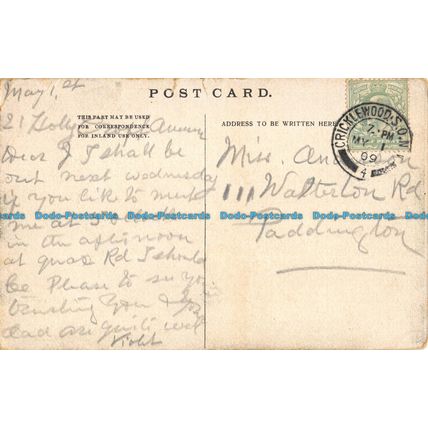 POST CARD.
May 1st
THIS PART MAY BE USED
FOR CORRESPONDENCE
FOR INLAND USE ONLY.
ADDRESS TO BE WRITTEN HERE
21 Avenue
Dear I shall be
out next wednesday
if you like to meet
me at
in the afternoon
at Rd I should
be Please to see you
trusting you &
dad are quite well
Violet
Miss
111 Walterton Rd
Paddington
CRICKLEWOOD.S.O.
7. PM
MY 1
09
4
Dodo-Postcards Dodo-Postcards Dodo-Postcards Dodo-Postcards Dodo-Postcards